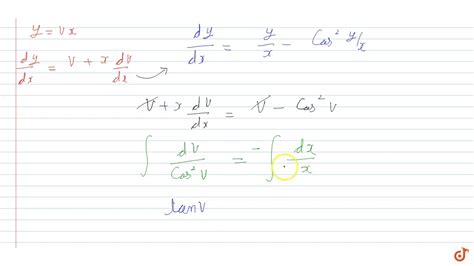 y = vx
dy/dx = v + x dv/dx
dy/dx = y/x - Cos² y/x
v + x dv/dx = v - Cos² v
∫ dv/Cos² v = -∫ dx/x
tan v